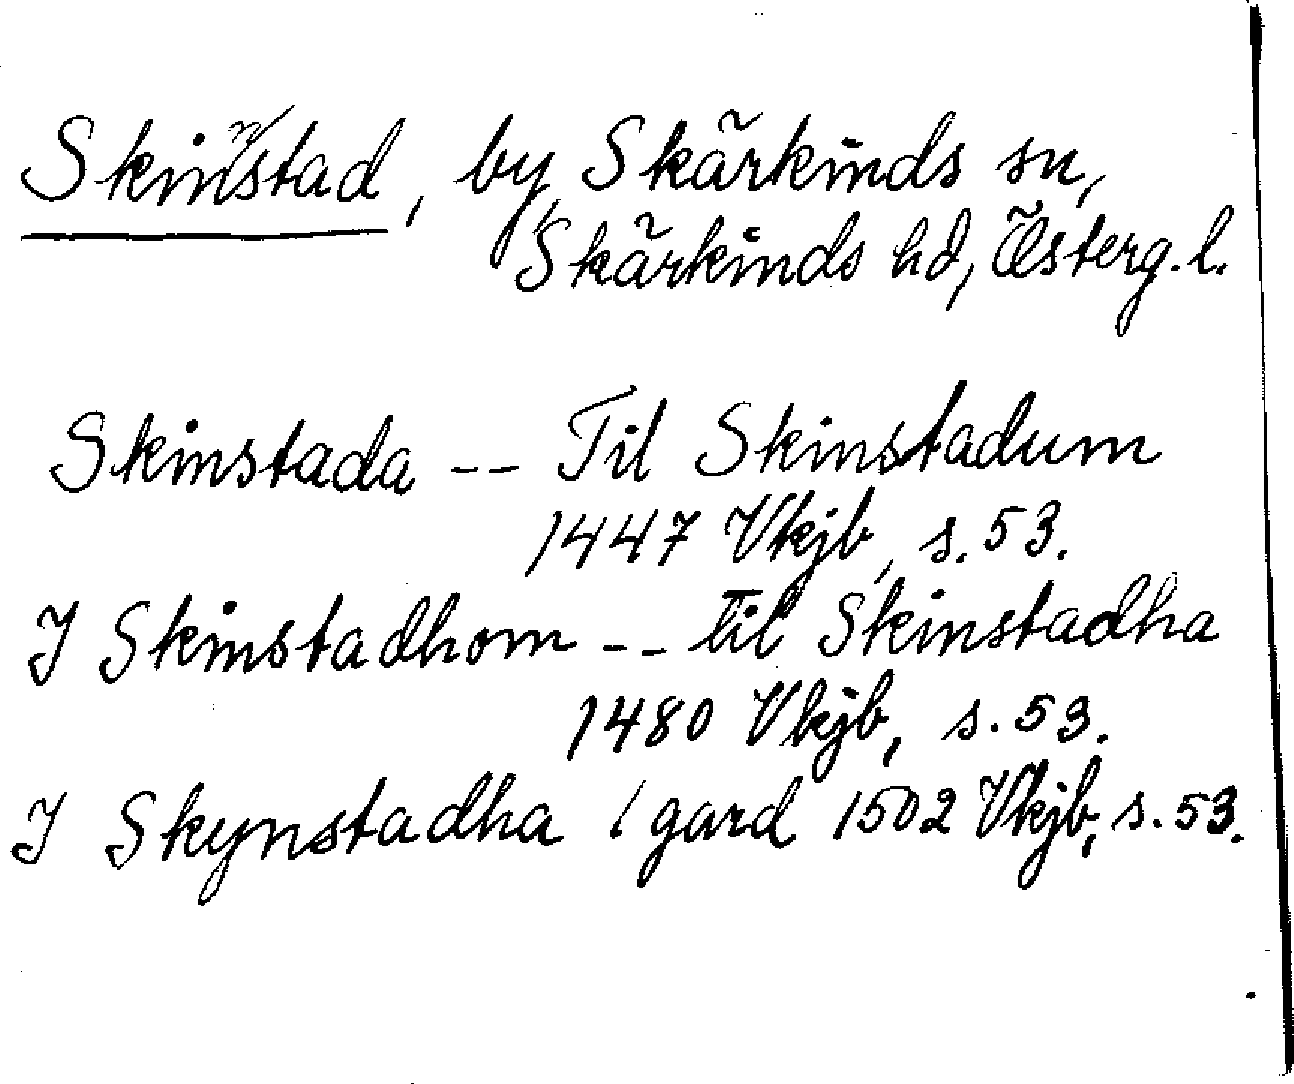 Skinnstad, by, Skärkinds sn,
Skärkinds hd, Österg. l.
Skinstada -- Til Skinstadum
1447 Vkjb, s. 53.
J Skinstadhom -- til Skinstadha
1480 Vkjb, s. 53.
J Skynstadha 1 gard 1502 Vkjb, s. 53.